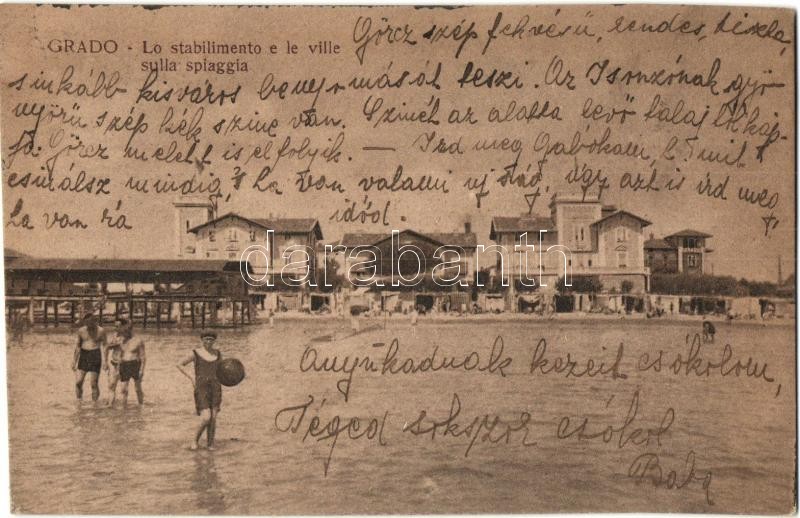 GRADO - Lo stabilimento e le ville
sulla spiaggia
Görcz szép fekvésű, rendes, tiszta,
inkább kisváros benyomását teszi. Az Isonzónak gyö
nyörű szép kék szine van. Szinét az alatta levő talaj tól kap-
ja. Görcz mellett is elfolyik. — Ird meg Gabókám, hogy mit
csinálsz mindig, s ha van valami uj ság, úgy azt is ird meg,
ha van rá időd.
darabanth
Anyukádnak kezeit csókolom,
Téged sokszor csókol
Baba